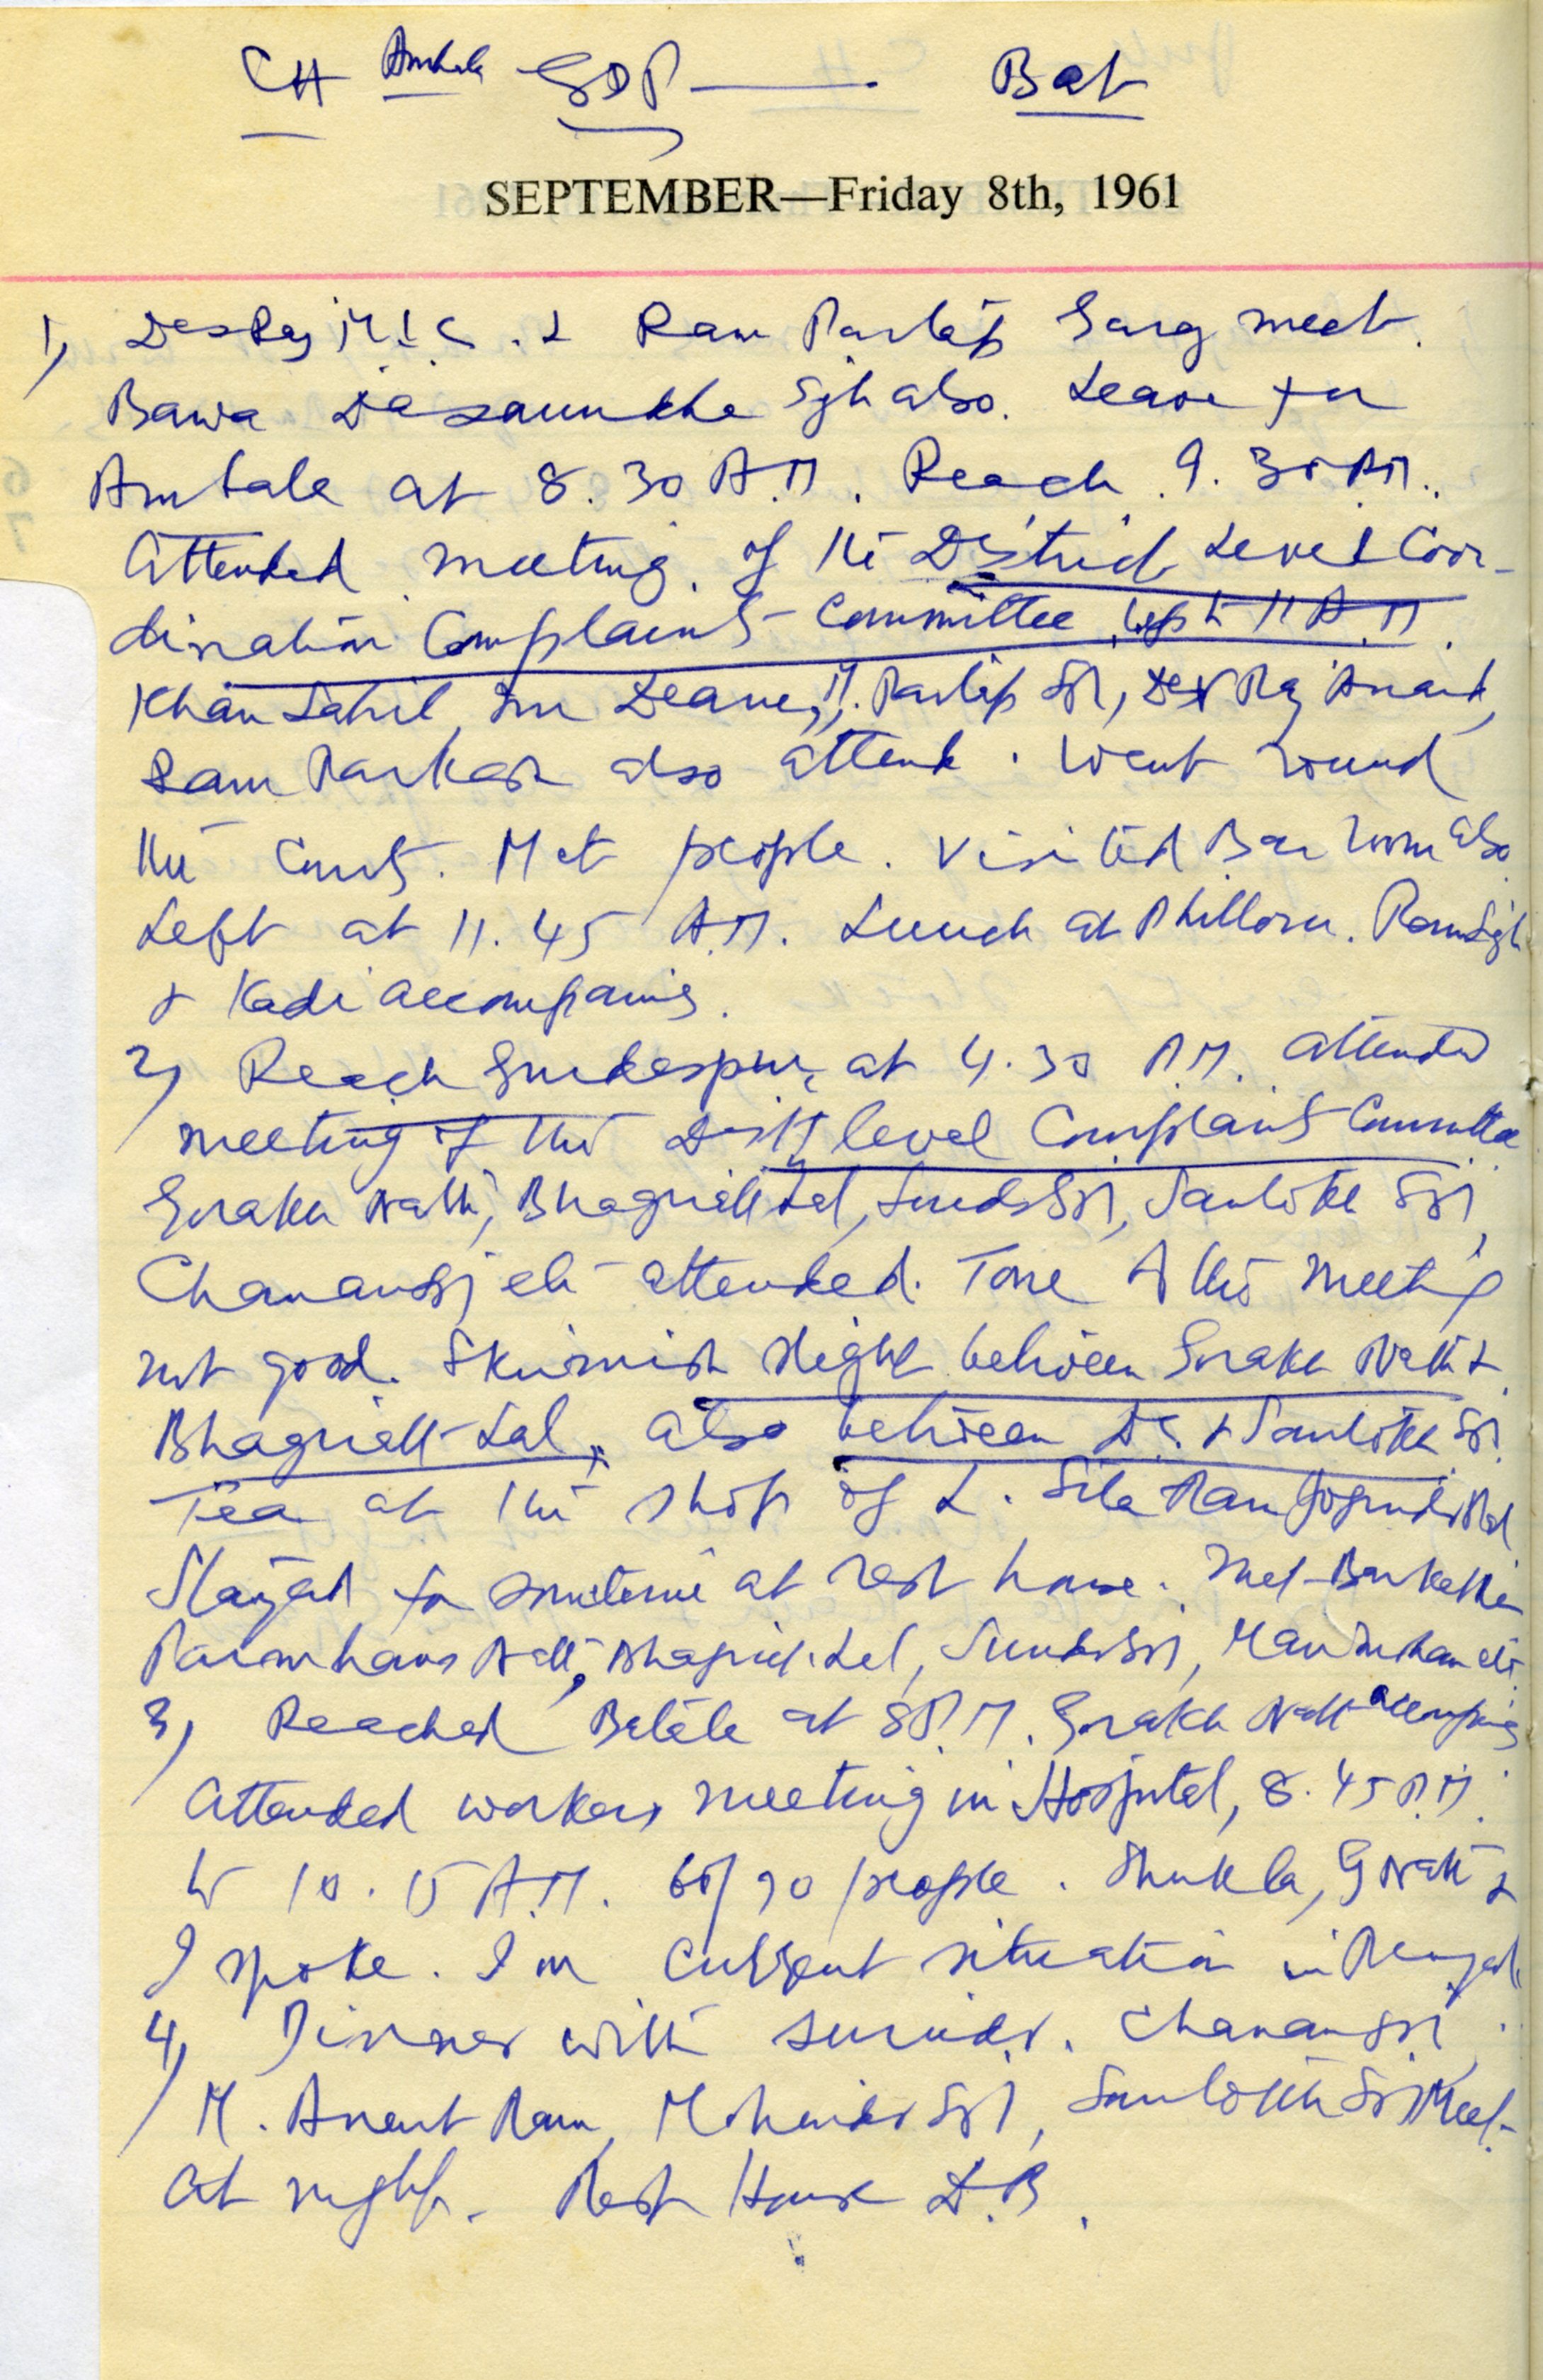 CH Ambala GDP — Bat
SEPTEMBER—Friday 8th, 1961
1) Des Raj M.L.C. & Ram Partap Garg meet.
Bawa Dasaundha Sgh also. Leave for
Ambala at 8.30 A.M. Reach 9.30 A.M.
Attended meeting of the District Level Coor-
dination Complaints Committee upto 11 A.M.
Khan Sahib, Om Deane, M. Partap Sgh, Des Raj Anand,
Ram Parkash also attend. Went round
the Courts. Met people. Visited Bar Room also
Left at 11.45 A.M. Lunch at Phillour. Ram Sgh
& Kadi accompanies.
2) Reach Gurdaspur at 4.30 P.M. Attended
meeting of the Distt level Complaints Committee
Gorakh Nath, Bhagirath Lal, Sunder Sgh, Santokh Sgh,
Chanan Sgh etc attended. Tone of the meeting
not good. Skirmish slight between Gorakh Nath &
Bhagirath Lal, also between D.C. & Santokh Sgh.
Tea at the shop of L. Sita Ram Joginder Pal
Stayed for sometime at rest house. Met
Paramhans Nath, Bhagirath Lal, Sunder Sgh, Man Mohan etc.
3) Reached Batala at 8 P.M. Gorakh Nath accompanies
Attended workers meeting in Hospital, 8.45 P.M.
to 10.15 A.M. 60/70 people. Shukla, G Nath &
I spoke. I on current situation in Punjab.
4) Dinner with Surinder. Chanan Sgh,
M. Anant Ram, Mohinder Sgh, Santokh Sgh Meet
at night. Rest House D.B.